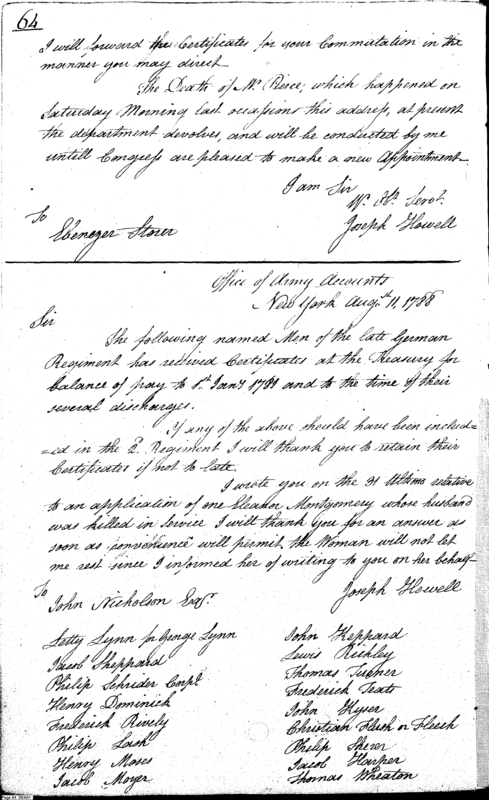 64
I will forward the Certificates for your Commutation in the
manner you may direct
The Death of Mr. Pierce, which happened on
Saturday Morning last occasions this address, at present
the department devolves, and will be conducted by me
untill Congress are pleased to make a new Appointment—
I am Sir
Yr. Hb. Servt.
Joseph Howell
To
Ebenezer Storer
Office of Army Accounts
New York Augst. 11, 1788
Sir
The following named Men of the late German
Regiment has recived Certificates at the Treasury for
balance of pay to 1st Jany 1781 and to the time of their
several discharges.
If any of the above should have been includ=
=ed in the 2d. Regiment I will thank you to retain their
Certificates if not to late.
I wrote you on the 31 Ultimo relative
to an application of one Eleanor Montgomery whose husband
was killed in Service I will thank you for an answer as
soon as convenience will permit, the Woman will not let
me rest since I informed her of writing to you on her behalf—
Joseph Howell
To
John Nicholson Esqr.
Letty Lynn for George Lynn
Jacob Sheppard
Philip Schrider Corpl
Henry Dominick
Frederick Rively
Philip Lash
Henry Moses
Jacob Moyer
John Keppard
Lewis Richley
Thomas Turner
Frederick Teats
John Hyser
Christian Flesh or Fleesh
Philip Sherer
Jacob Harper
Thomas Wheaton